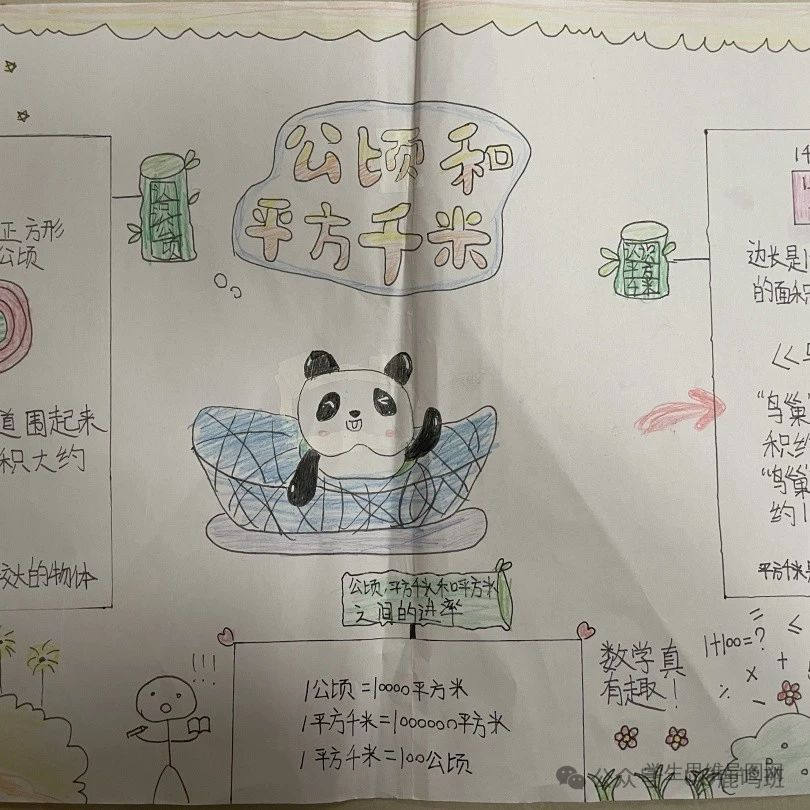 公顷和
平方千米
认识
公顷
正方形
公顷
道围起来
积大约
较大的物体
认识
平方
千米
边长是1
的面积
“鸟巢”
积约
“鸟巢
约1
平方千米
公顷、平方千米和平方米
之间的进率
1公顷=10000平方米
1平方千米=1000000平方米
1平方千米=100公顷
!!!
数学真
有趣！
1+100=?
= ≤
× +
÷ -
公众
学生思维导图网
鹿鸣班